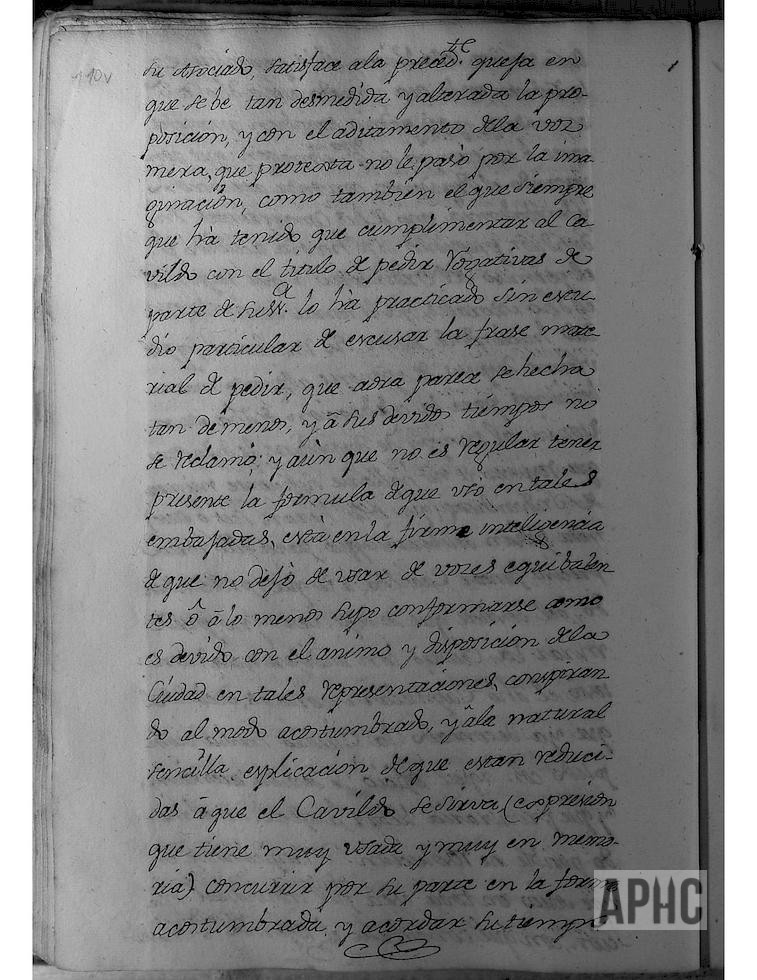 110v
su Asociado, satisface a la preced.te queja en
que se be tan desmedida y alterada la pro-
posición, y con el aditamento dela voz
mera, que protexta no le pasò por la ima-
ginación, como tambien el que siempre
que hà tenido que cumplimentar al Ca
vildo con el titulo de pedir Rogativas de
parte de su Sª. lo hà practicado sin estu
dio particular de escusar la frase mate
rial de pedir, que aora parece se hecha
tan de menos, y â sus devidos tiempos no
se reclamò; y aùn que no es regular tener
presente la formula de que usò en tales
embajadas, està en la firme inteligencia
de que no dejò de usar de vozes equibalen
tes ô â lo menos supo conformarse como
es devido con el animo y disposición dela
Ciudad en tales representaciones, conspiran
do al modo acostumbrado, y âla natural
sencilla explicación de que estan reduci-
das â que el Cavildo se sirva, (expresión
que tiene muy usada y muy en memo-
ria) concurrir por su parte en la forma
acostumbrada, y acordar su tiempo
APHC